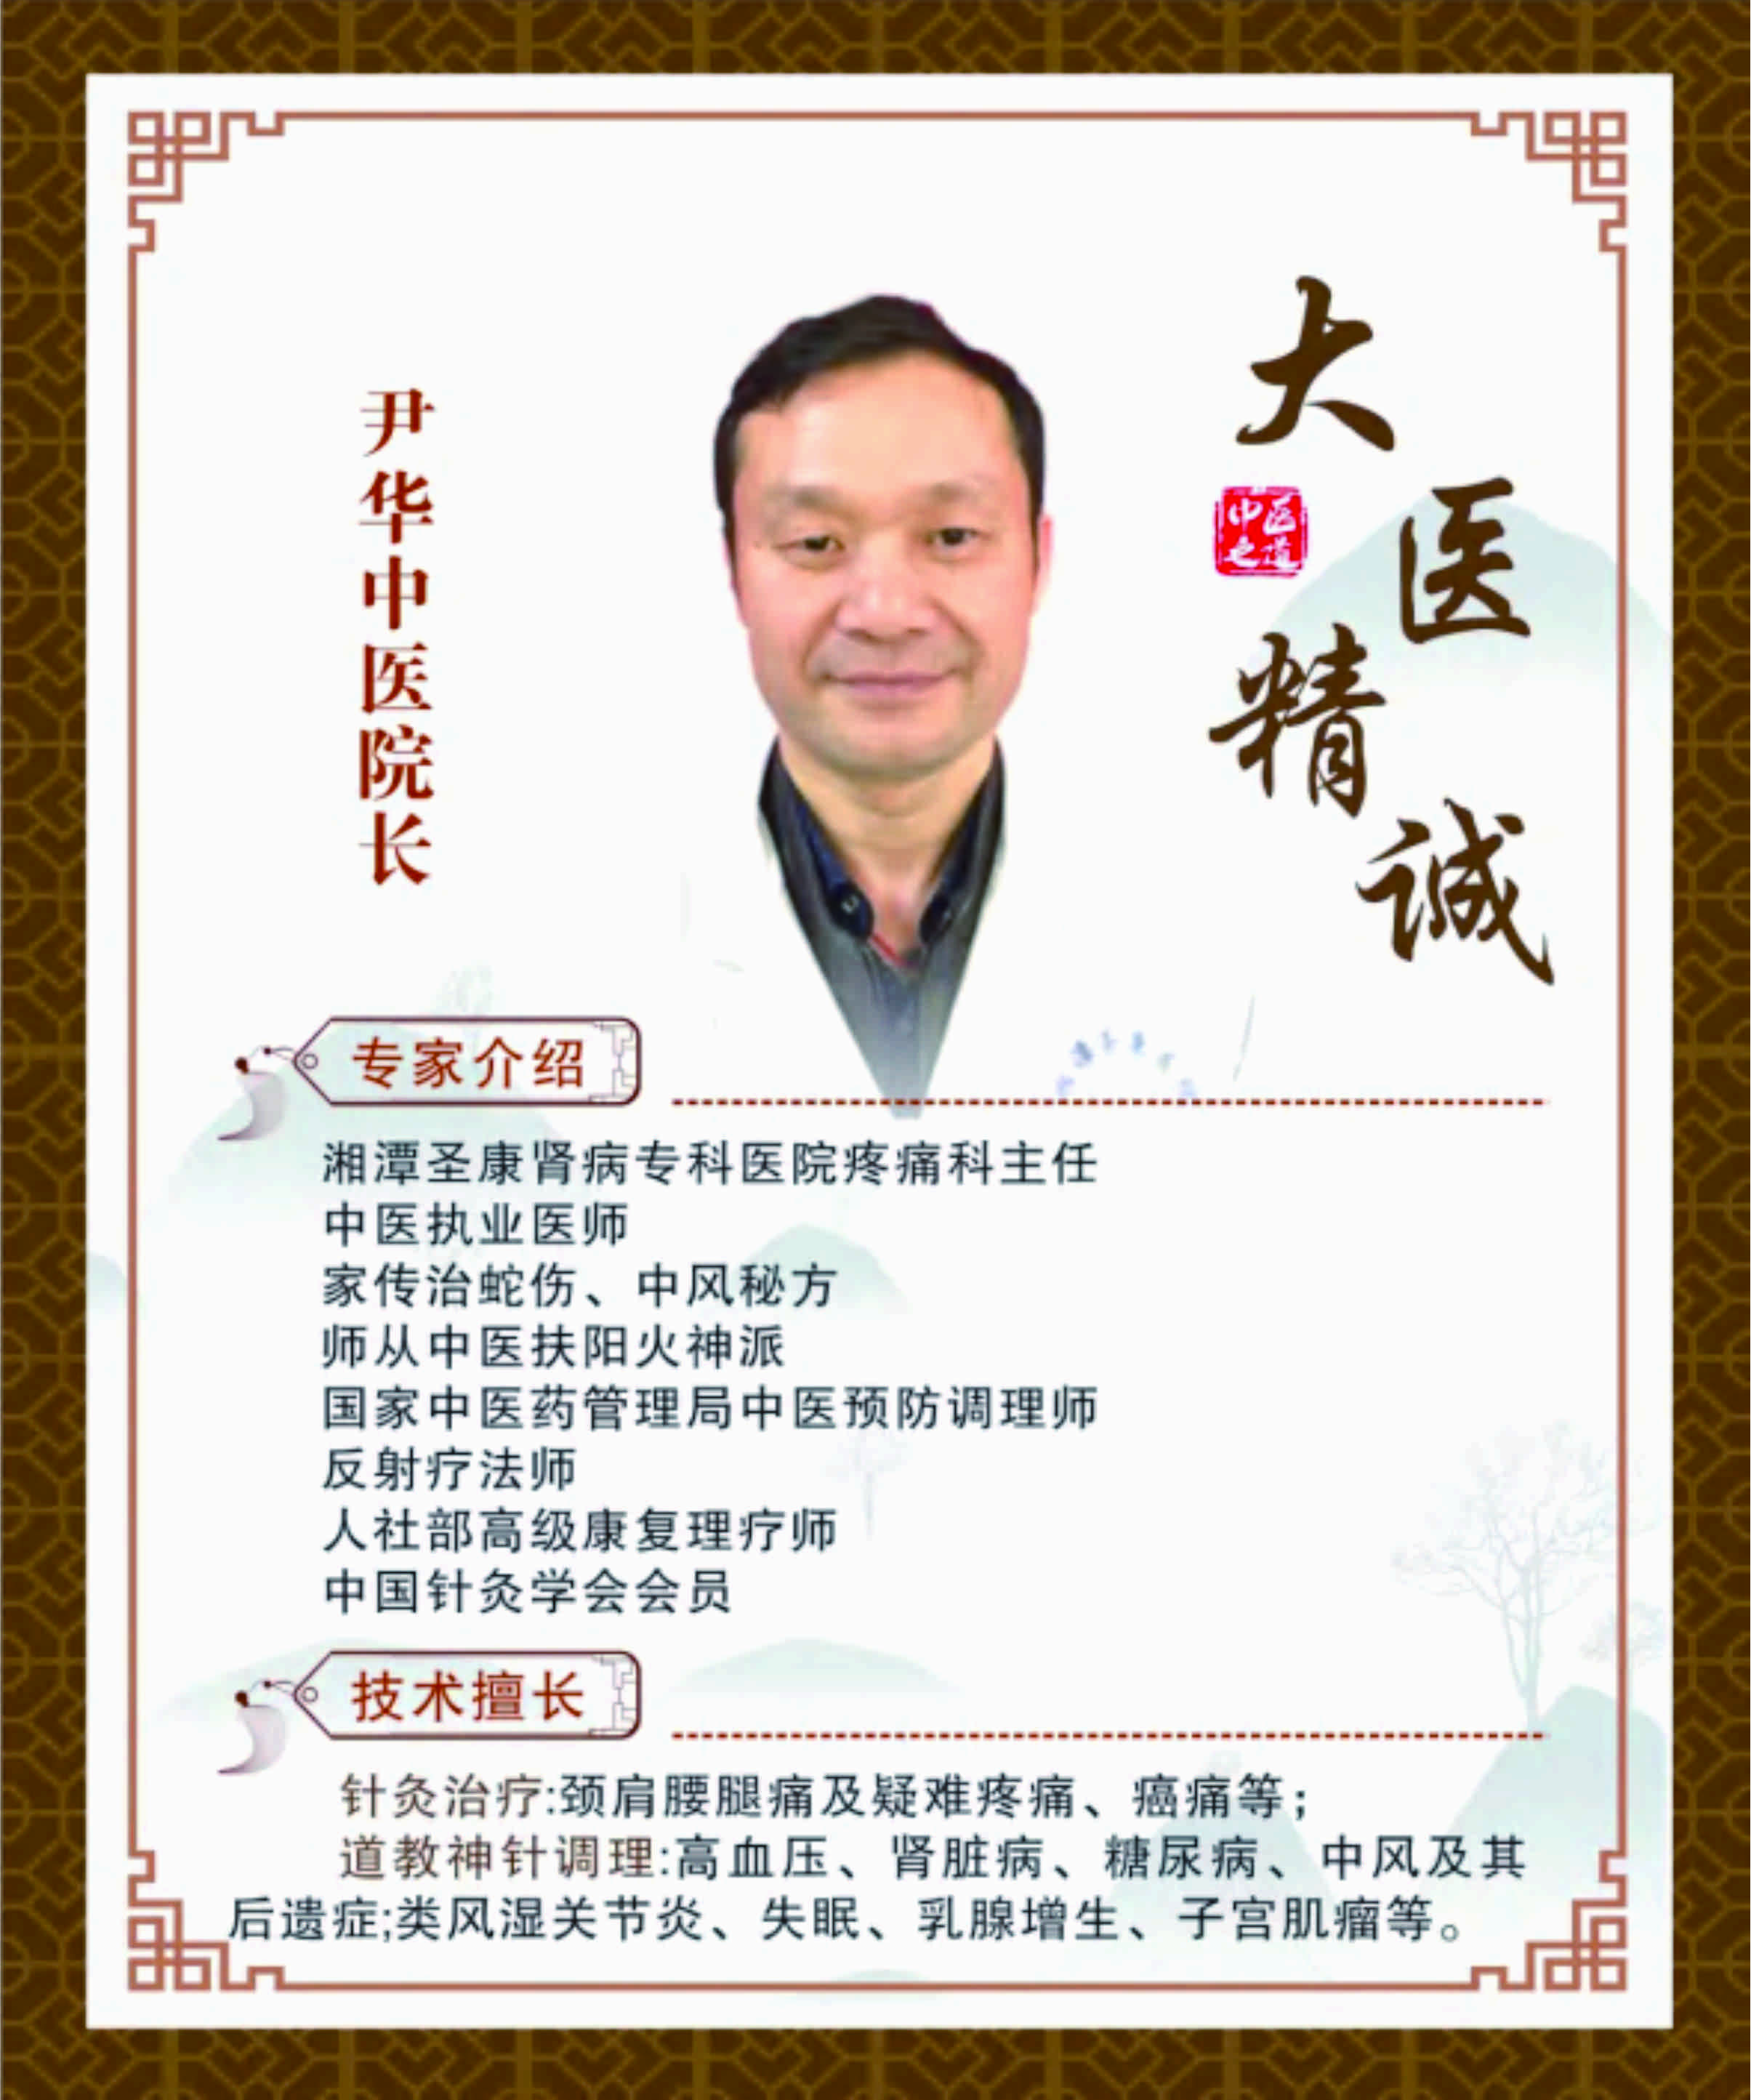 尹华中医院长
大医精诚
中医之道
专家介绍
湘潭圣康肾病专科医院疼痛科主任
中医执业医师
家传治蛇伤、中风秘方
师从中医扶阳火神派
国家中医药管理局中医预防调理师
反射疗法师
人社部高级康复理疗师
中国针灸学会会员
技术擅长
针灸治疗:颈肩腰腿痛及疑难疼痛、癌痛等；
道教神针调理:高血压、肾脏病、糖尿病、中风及其
后遗症;类风湿关节炎、失眠、乳腺增生、子宫肌瘤等。